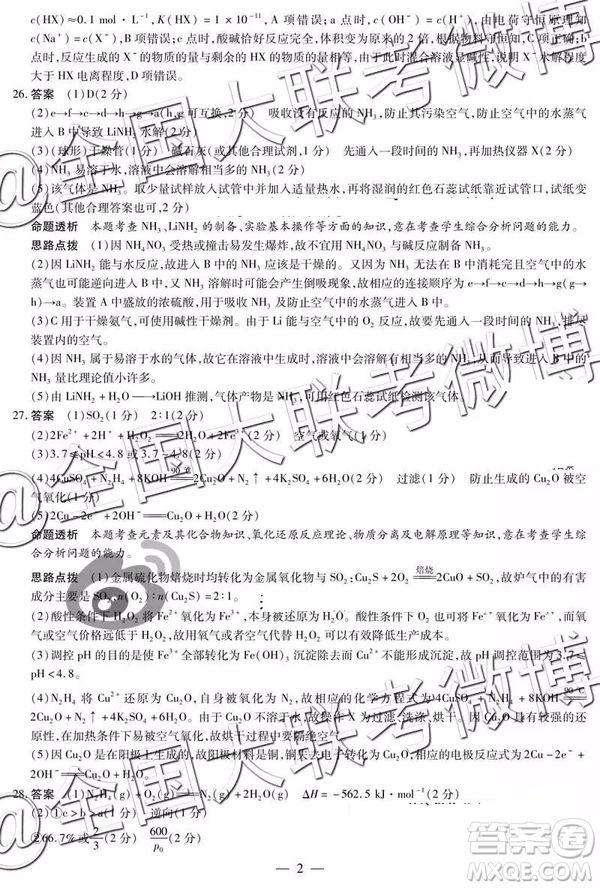 c(HX)≈0.1 mol·L⁻¹,K(HX)=1×10⁻¹¹,A项错误;a点时,c(OH⁻)=c(H⁺),由电荷守恒原理知
c(Na⁺)=c(X⁻),B项错误;b点时,酸碱恰好反应完全,
点时生成的X⁻的物质的量与剩余的HX的物质的量相等,由于此时混合溶液显碱性,说明X⁻水解程度
大于HX电离程度,D项错误。
26.答案 (1)D(2分)
(2)e→f→c→d→h→g→a(h,g可互换,2分) 吸收没有反应的NH₃,防止其污染空气,防止空气中的水蒸气
进入B中导致LiNH₂水解(2分)
(3)(球形)干燥管(1分) 碱石灰(或其他合理试剂,1分) 先通入一段时间的NH₃,再加热仪器X(2分)
(4)NH₃易溶于水,溶液中会溶解NH₃(2分)
(5)该气体是NH₃。取少量试样放入试管中并加入适量热水,再将湿润的红色石蕊试纸靠近试管口,试纸变
蓝色(其他合理答案也可,2分)
命题透析 本题考查NH₃、LiNH₂的制备、实验基本操作等方面的知识,意在考查学生综合分析问题的能力。
思路点拨 (1)因NH₄NO₃受热或撞击易发生爆炸,故不宜用NH₄NO₃与碱反应制备NH₃。
(2)因LiNH₂能与水反应,故进入B中的NH₃应该是干燥的。又因为NH₃无法在B中消耗完且空气中的水蒸
气也可能逆向进入B中,NH₃溶于水时可能会产生倒吸现象,故相应的连接顺序为e→f→c→d→h→g(h,
g)→a。装置A中盛放的浓硫酸,用于吸收NH₃及防止空气中的水蒸气进入B中。
(3)C用于干燥氨气,可使用碱性干燥剂。由于Li能与空气中的O₂反应,故要先通入一段时间的NH₃,排尽
装置内的空气。
(4)因NH₃属于易溶于水的气体,故它在溶液中生成时,溶液中会溶解一部分NH₃,
NH₃量比理论值小许多。
(5)由LiNH₂+H₂O→LiOH推测,气体产物是NH₃,可用红色石蕊试纸检测该气体。
27.答案 (1)SO₂(1分) 2:1(2分)
(2)2Fe²⁺+2H⁺+H₂O₂══2Fe³⁺+2H₂O(2分) 空气或氧气(1分)
(3)3.7≤pH<4.8或3.7~4.8(2分)
(4)4CuSO₄+N₂H₄+8KOH══2Cu₂O+N₂↑+4K₂SO₄+6H₂O(2分) 过滤(1分) 防止生成的Cu₂O被空
气氧化(1分)
(5)2Cu−2e⁻+2OH⁻══Cu₂O+H₂O(2分)
命题透析 本题考查元素及其化合物知识、氧化还原反应理论、物质分离及电解原理等知识,意在考查学生综
合分析问题的能力。
思路点拨 (1)金属硫化物焙烧时均转化为金属氧化物与SO₂:Cu₂S+2O₂ 焙烧══2CuO+SO₂,故炉气中的有害
成分主要是SO₂,n(O₂):n(Cu₂S)=2:1。
(2)酸性条件下H₂O₂将Fe²⁺氧化为Fe³⁺,本身被还原为H₂O。酸性条件下O₂也可将Fe²⁺氧化为Fe³⁺,而O₂
或空气价格远低于H₂O₂,故用氧气或者空气代替H₂O₂可以有效降低生产成本。
(3)调控pH的目的是使Fe³⁺全部转化为Fe(OH)₃沉淀除去而Cu²⁺不能产生沉淀,故pH调控范围是3.7≤
pH<4.8。
(4)N₂H₄将Cu²⁺还原为Cu₂O,自身被氧化为N₂,故相应的化学方程式为4CuSO₄+N₂H₄+8KOH 90℃══
2Cu₂O+N₂↑+4K₂SO₄+6H₂O。由于Cu₂O不溶于水,故操作X为过滤、洗涤、烘干。因Cu₂O具有较强的还
原性,在加热条件下易被空气氧化,故烘干过程中要隔绝空气。
(5)因Cu₂O是在阳极上生成的,故阳极材料是铜,铜失去电子转化为Cu₂O,相应的电极反应式为2Cu−2e⁻+
2OH⁻══Cu₂O+H₂O。
28.答案 (1)N₂H₄(g)+O₂(g)══N₂(g)+2H₂O(g) ΔH=−562.5 kJ·mol⁻¹(2分)
(2)①c>b>a(1分) 逆向(1分)
②66.7%或2/3(2分) 600/p₀(2分)
— 2 —
@全国大联考微博
@全国大联考微博
@全国大联考微博
答案圈